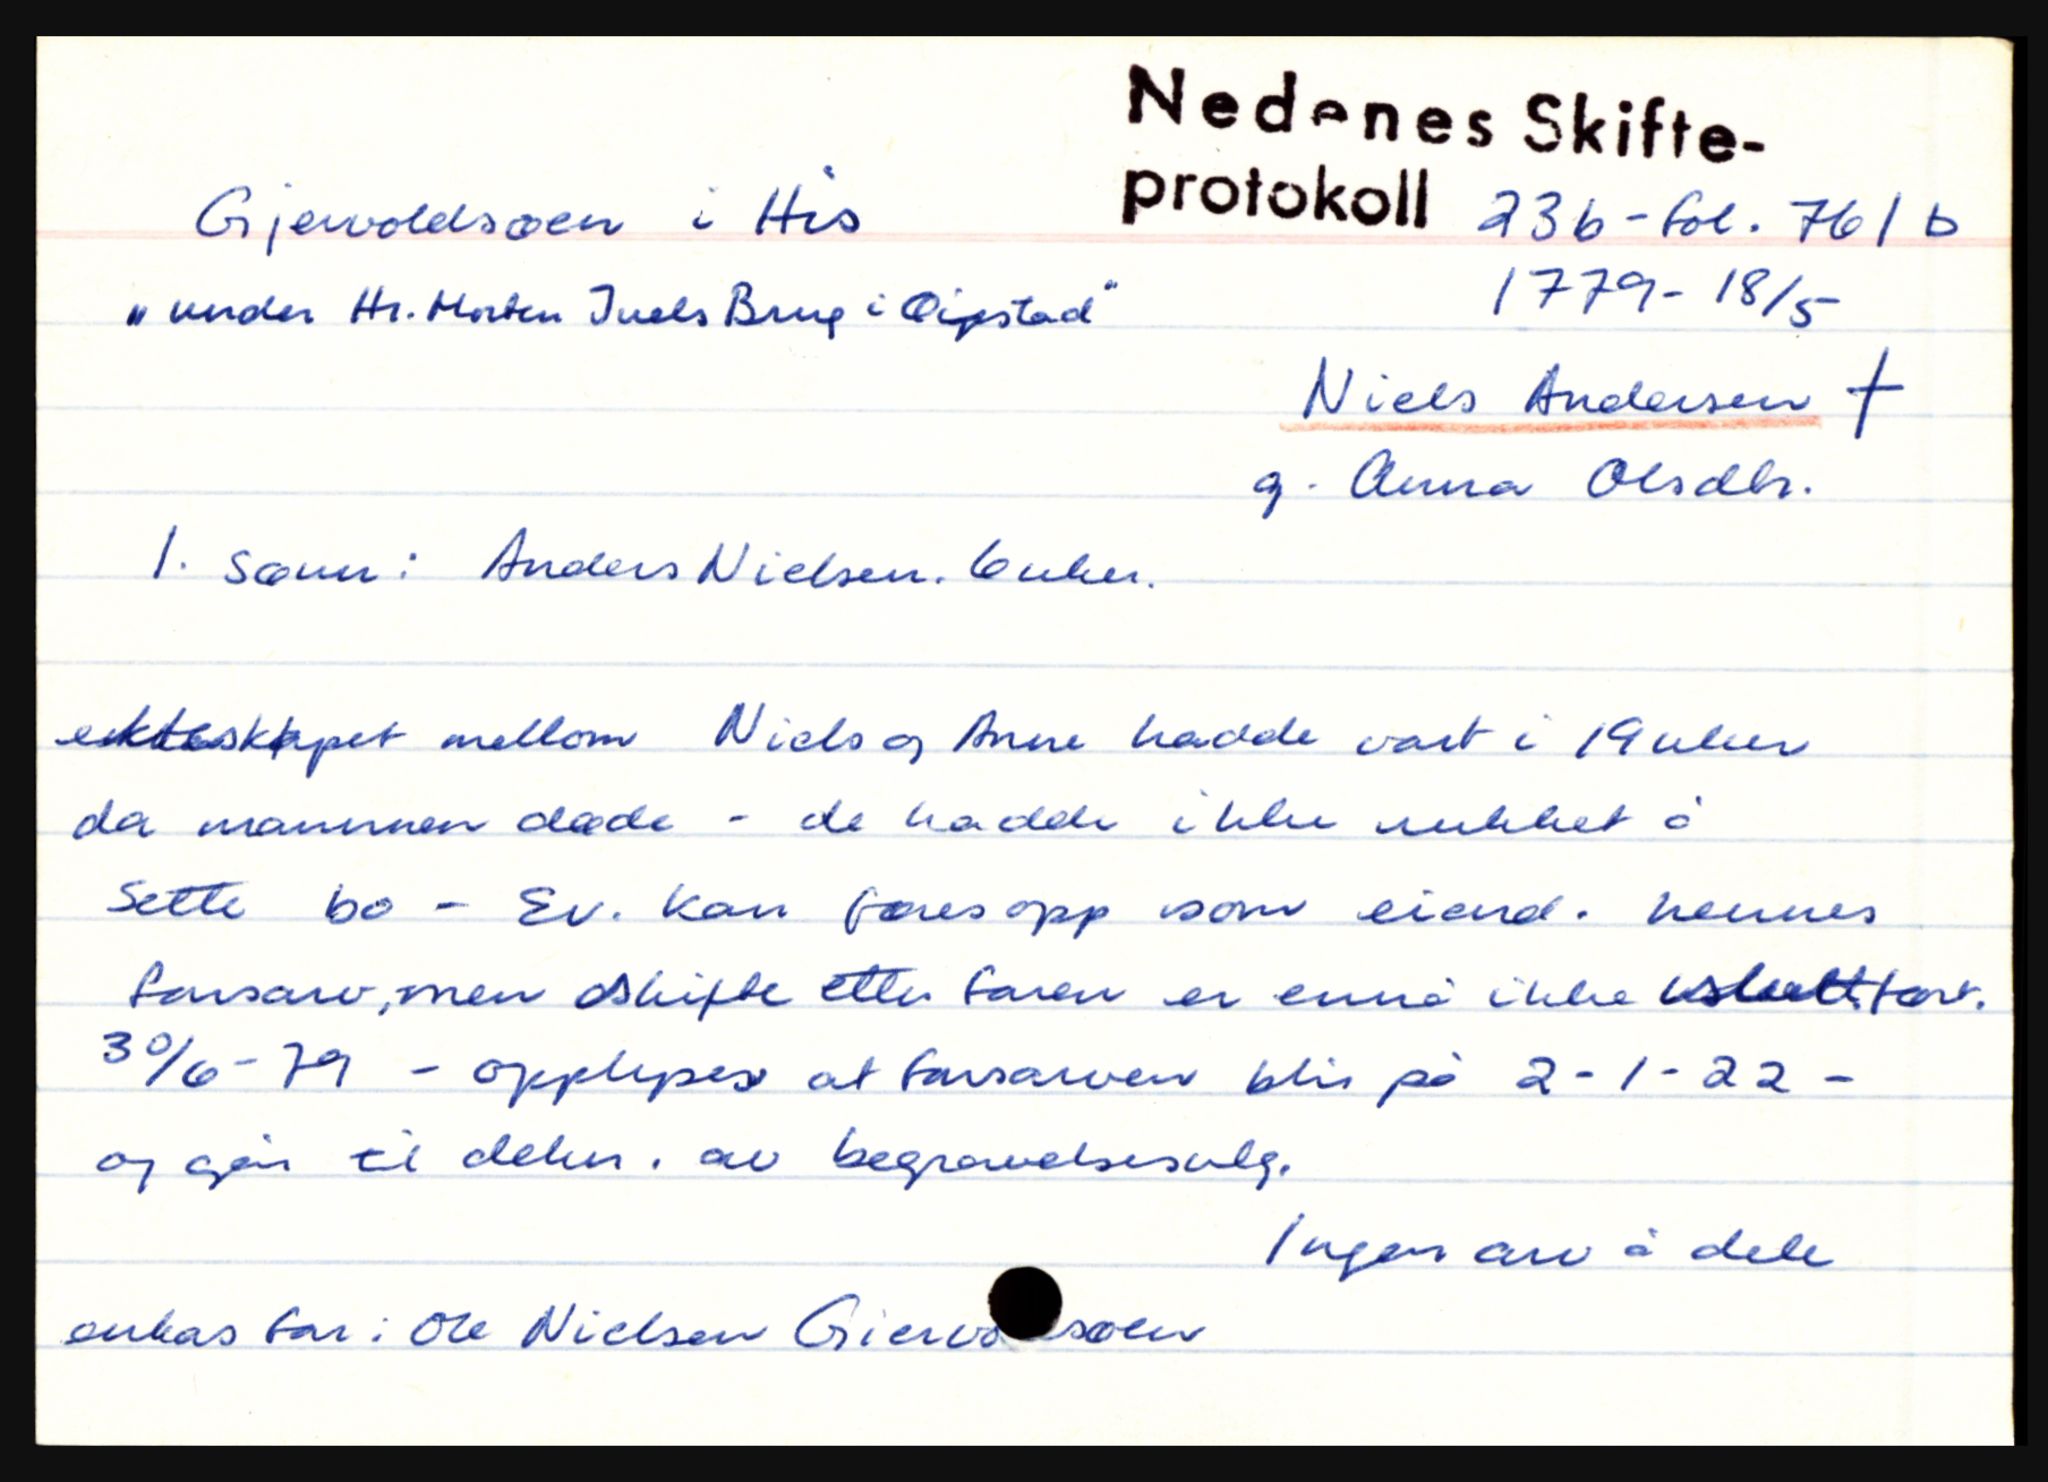 Nedenes Skifte-
protokoll
Gjervoldsøen i His
23b - fol. 761 b
"under Hr. Morten Juels Brug i Øigstad"
1779 - 18/5
Niels Andersen †
g. Anna Olsdtr.
1. sønn: Anders Nielsen. 6 uker.
ekteskapet mellom Niels og Anne hadde vart i 19 uker
da mannen døde - de hadde ikke rukket å
sette bo - Ev. kan føres opp som eiend. hennes
farsarv, men skifte etter faren er ennå ikke sluttført.
30/6 - 79 - opplyses at farsarven blir på 2 - 1 - 22 -
og går til dekn. av begravelsesutg.
Ingen arv å dele
enkas far: Ole Nielsen Giervoldsøen